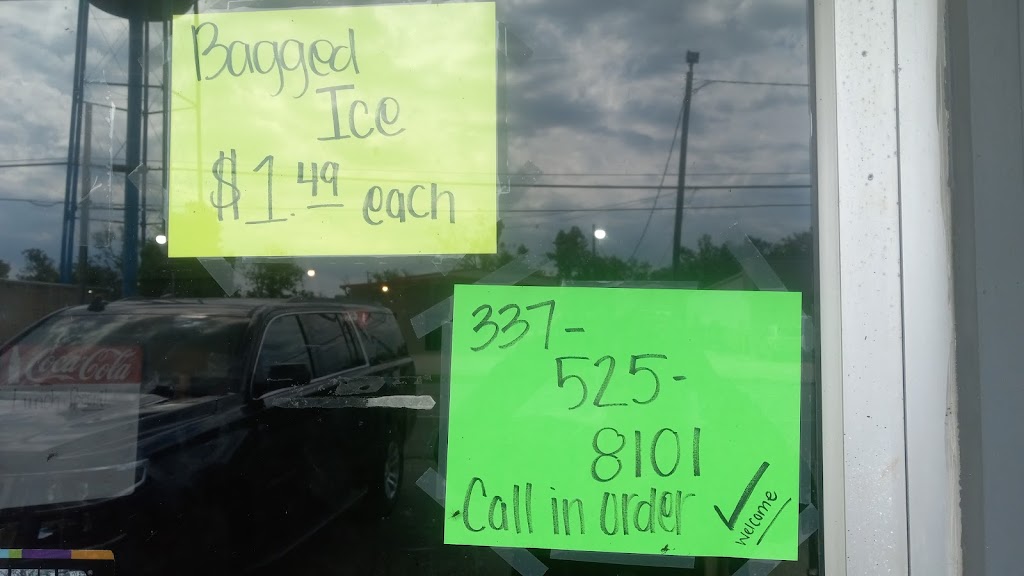 Bagged
Ice
$1.49 each
337-
525-
8101
Call in order
✓ welcome
Coca-Cola
Lunch